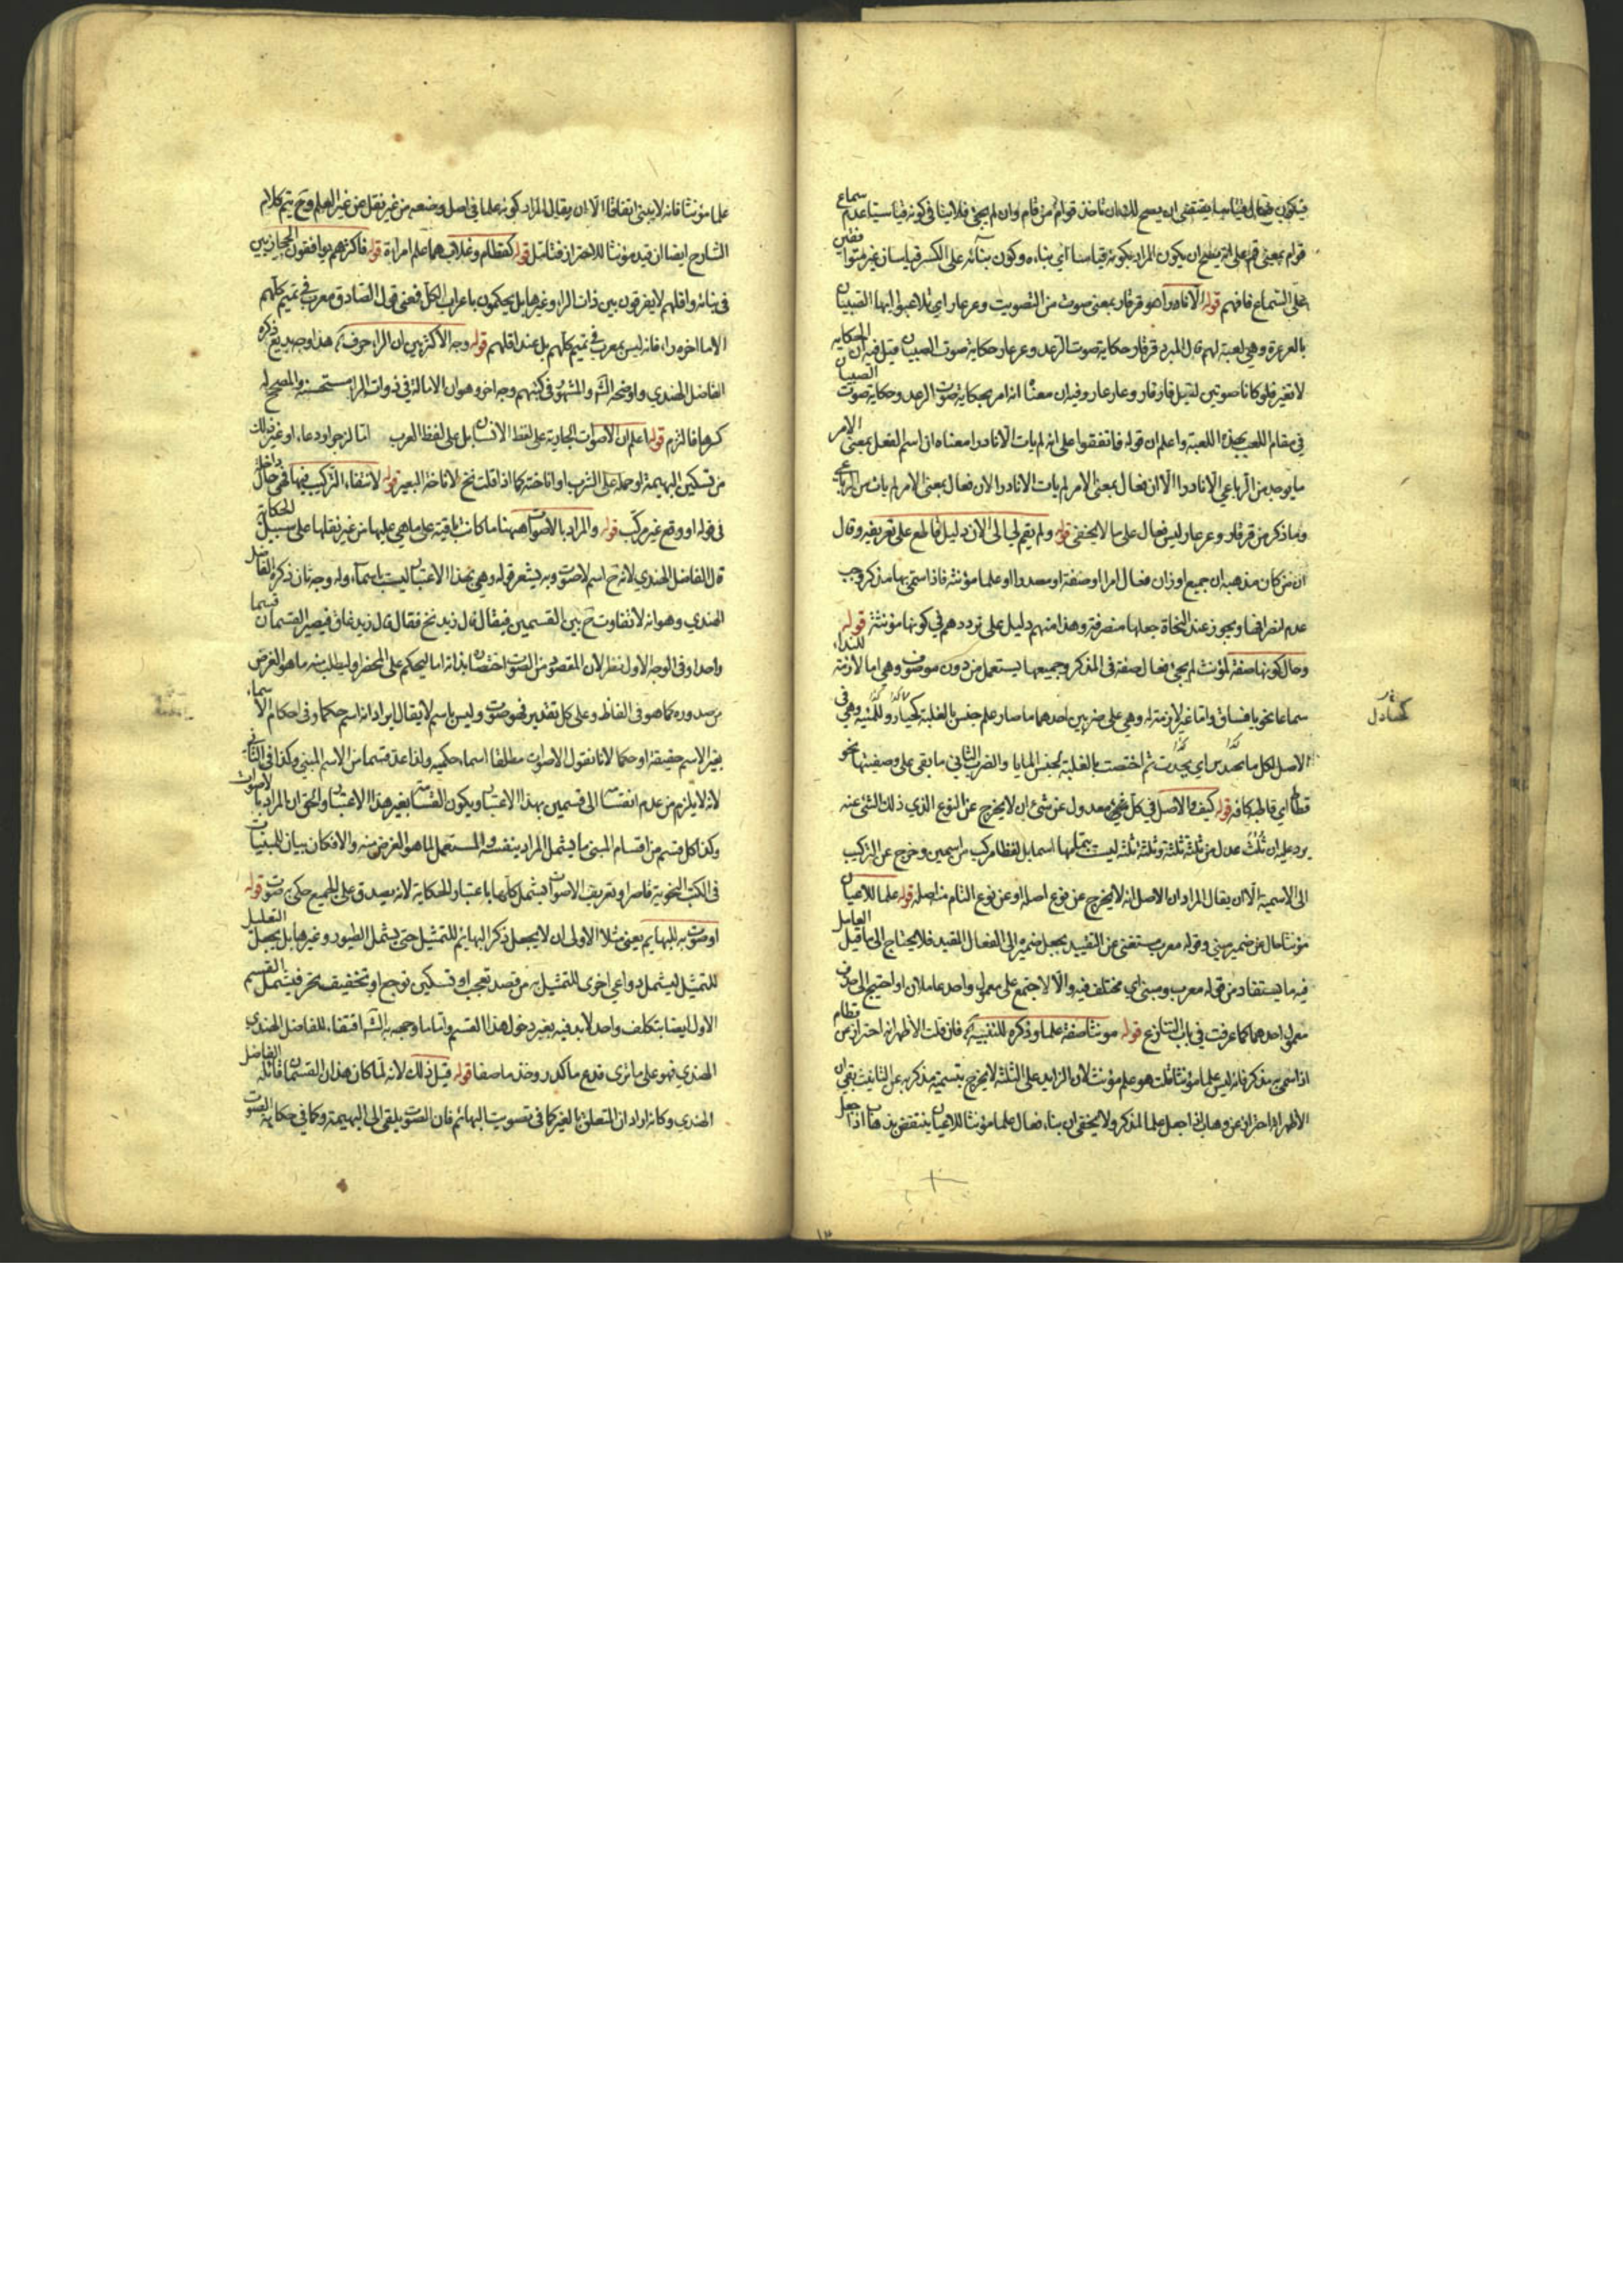 فيكون فعال قياسيا يقتضي ان يصح لك ان تاخذ قوام من قام وان لم يجئ فلا ينافي كونه قياسيا عدم سماع
قوام بمعنى قم على انه يصلح ان يكون المراد بكونه قياسا اي بناءه وكون بنائه على الكسر قياسا غير متوقف
على السماع فافهم قوله الا نادرا هو قرقار بمعنى صوت من التصويت وعرعار اي تلاعبوا ايها الصبيان
بالعرعرة وهي لعبة لهم قال المبرد قرقار حكاية صوت الرعد وعرعار حكاية صوت الصبيان قيل فيه ان الحكاية
لا تغير فلو كانا صوتين لقيل قار قار وعار عار وفيه ان معناه انه امر بحكاية صوت الرعد وحكاية صوت الصبيان
في مقام اللعب بهذه اللعبة واعلم ان قوله فاتفقوا على انه لم يات الا نادرا معناه ان اسم الفعل بمعنى الامر
ما يوجد من الرباعي الا نادرا الا ان فعال بمعنى الامر لم يات الا نادرا لان فعال بمعنى الامر لم يات من الرباعي
وما ذكر من قرقار وعرعار ليس فعال على ما لا يخفى قوله ولم يقم لي الى الان دليل قاطع على تعريفه وقال
ان من كان مذهبه ان جميع اوزان فعال امرا او صفة او مصدرا او علما مؤنثة فاذا سمي بها مذكر وجب
عدم انصرافها ويجوز عند النحاة جعلها منصرفة وهذا منهم دليل على ترددهم في كونها مؤنثة قوله
وحال كونها صفة لمؤنث لم يجئ فعال صفة في المذكر وجميعها يستعمل من دون موصوف وهي اما لازمة للنداء
سماعا نحو يا فساق واما غير لازمة له وهي على ضربين احدهما ما صار علم جنس بالغلبة وهي في
الاصل لكل ما ثم اختصت بالغلبة لجنس المنايا والضرب الثاني ما بقي على وصفيتها نحو
قطاط اي قاطة كافية قوله كيف والاصل في كل معدول عن شئ ان لا يخرج عن النوع الذي ذلك الشئ عنه
يرد عليه ان ثلث عدل عن ثلثة ثلثة وثلثة ثلثة ليست بجملتها اسما بل لفظا مركب من اسمين وخرج عن التركيب
الى الاسمية الا ان يقال المراد ان الاصل انه لا يخرج عن نوع اصله او عن نوع التام من اصله قوله علما للاعيان
مؤنثا حال من ضمير مبني وقوله معرب مستغنى عن التقييد بجعل ضميره الى الفعال المقيد فلا يحتاج الى ما قيل العامل
فيه ما يستفاد من قوله معرب ومبني اي مختلف فيه والا لاجتمع على معمول واحد عاملان او احتيج الى حذف
معمول احدهما كما عرفت في باب التنازع قوله مونثا صفة علما وذكره للتنبيه فان قلت الاظهر انه احتراز عن قطام
اذا سمي به مذكر فانه ليس علما مؤنثا قلت هو علم مؤنث لان الزايد على الثلثة لا يخرج بتسمية مذكر به عن التانيث بقي ان
الاظهر انه احتراز عن وهاب اذا جعل علما لمذكر ولا يخفى ان بناء فعال علما مؤنثا للاعيان ينتقض بذهاب اذا جعل
كحساد ل
علما مؤنثا فانه لا يبنى اتفاقا الا ان يقال المراد كونه علما في اصل وضعه من غير نقل عن غير العلم وح يتم كلام
الشارح ايضا ان قيد مؤنثا للاحتراز فتامل قوله كقطام وغلاب هما علم امراة قوله فاكثرهم يوافقون الحجازيين
في بنائه واقلهم لا يفرقون بين ذات الراء وغيرها بل يحكمون باعراب الكل فمعنى قول الصادق معرب في تميم كلهم
الا ما اخره راء فانه ليس بمعرب في تميم كلهم بل عند اقلهم قوله وجه الاكثرين ان الراء حرف هذا وجه بديع ذكره
الفاضل الهندي واوضحه الش والمشهور في كتبهم وجه اخر وهو ان الامالة في ذوات الراء مستحسنة والمصحح له
كسرها فالتزم قوله اعلم ان الاصوات الجارية على لفظ الانسان بل على لفظ العرب اما لزجر او دعاء او غير ذلك
من تسكين البهيمة او حمله على الشرب او اناخته كما اذا قلت نخ لاناخة البعير قوله لانتفاء التركيب فيها فهي حال داخلة
في قوله او وقع غير مركب قوله والمراد بالاصوات ههنا ما كانت باقية على ما هي عليها من غير نقلها على سبيل الحكاية
قال الفاضل الهندي لانه ح اسم لا صوت وبه يشعر قوله وهي بهذا الاعتبار ليست باسماء وله وجه ثان ذكره الفاضل
الهندي وهو انه لا تفاوت ح بين القسمين فيقال قال زيد نخ فقال قال زيد غاق فيصير القسمان قسما
واحدا وفي الوجه الاول نظر لان المقصود من الصوت احضاره بذاته اما ليحكم على المحضر او ليطلب منه ما هو الغرض
من صدوره كما هو في الفاظ وعلى كل تقدير فهو صوت وليس باسم لا يقال ايراد انه اسم حكما وفي احكام الاسماء
بغير الاسم حقيقة او حكما لانا نقول الاصوات مطلقا اسماء حكمية ولذا عد قسما من الاسم المبني وكذا في الثاني
لانه لا يلزم من عدم انقسامها الى قسمين بهذا الاعتبار ويكون القسما بغير هذا الاعتبار والحق ان المراد بالاصوات
وكذا كل قسم من اقسام المبنى ما يشمل المراد بنفسه والمستعمل لما هو الغرض منه والا فكان بيان المبنيات
في الكتب النحوية قاصرا وتعريف الاصوات يشمل كلها باعتبار الحكاية لانه يصدق على الجميع حكي به صوت قوله
او صوت به للبهايم يعني مثلا الاولى ان لا يجعل ذكر البهايم للتمثيل حتى يشمل الطيور وغيرها بل يجعل التعليل
للتمثيل ليشمل دواعي اخرى للتمثيل به من قصد تعجب او تسكين توجع او تخفيف تحسر فيشمل القسم
الاول ايضا بتكلف واحد لا بد فيه بغير دخول هذا القسم واما ما وجهه به الش اقتفاء للفاضل الهندي
الهندي فهو على ما ترى فدع ما كدر وخذ ما صفا قوله قيل ذلك لانه لما كان هذان القسمان قائله الفاضل
الهندي وكانه اراد ان المتعلق بالغير كما في تصويت البهائم فان الصوت يلقى الى البهيمة وكما في حكاية الصوت